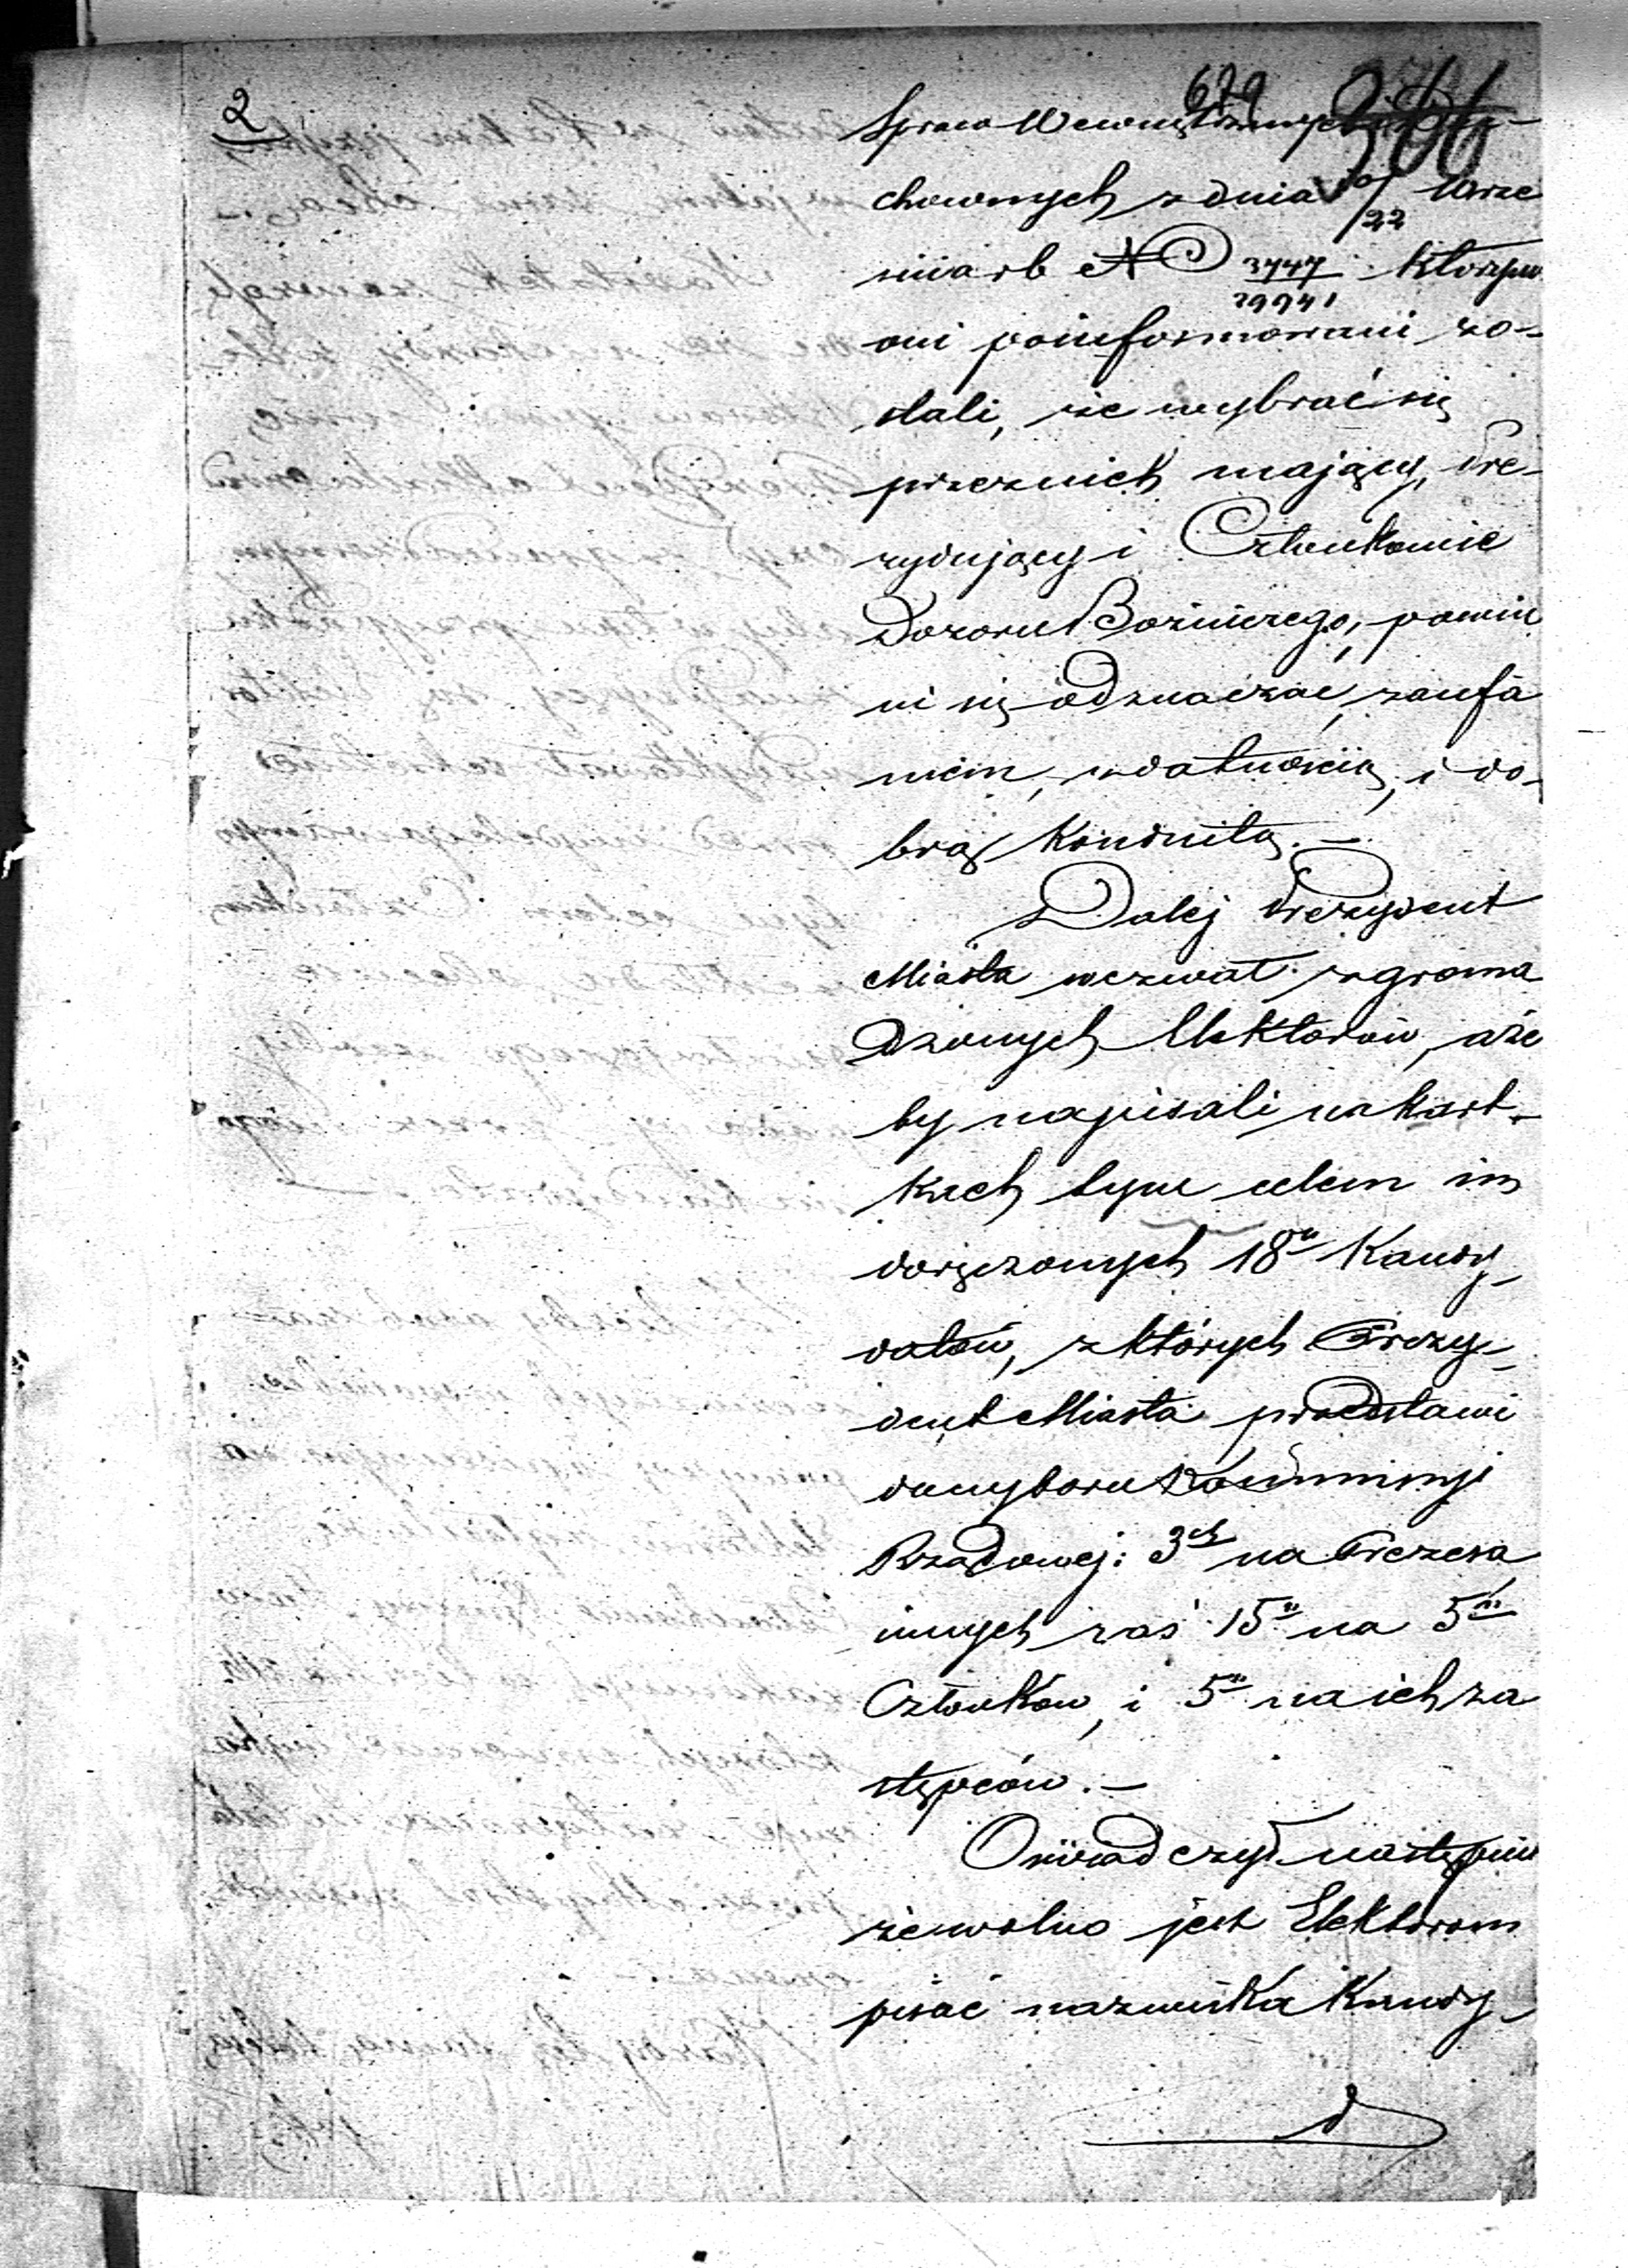 2
629
366
Spraw Wewnętrznych
chownych z dnia 10/22 Wrze
śnia rb No 3747/29941 którym
oni poinformowani zo-
stali, że wybrać się
przeznich mający, Pre-
zydujący i Członkowie
Dozoru Bóżniczego, powin
ni się odznaczać, zaufa
niem, zdatnością, i do-
brą Konduitą.-
Dalej Prezydent
Miasta wezwał zgroma
dzonych Elektorów, aże
by napisali na kart-
kach tym celem im
doręczonych 18u Kandy-
datów, z których Prezy-
dent Miasta przedstawi
do wyboru Kommissyi
Rządowej: 3ch na Prezesa
innych zaś 15u na 5ciu
Członków, i 5u na ich za
stępców.-
Oświadczył następnie
że wolno jest Elektorom
pisać nazwiska Kandy-